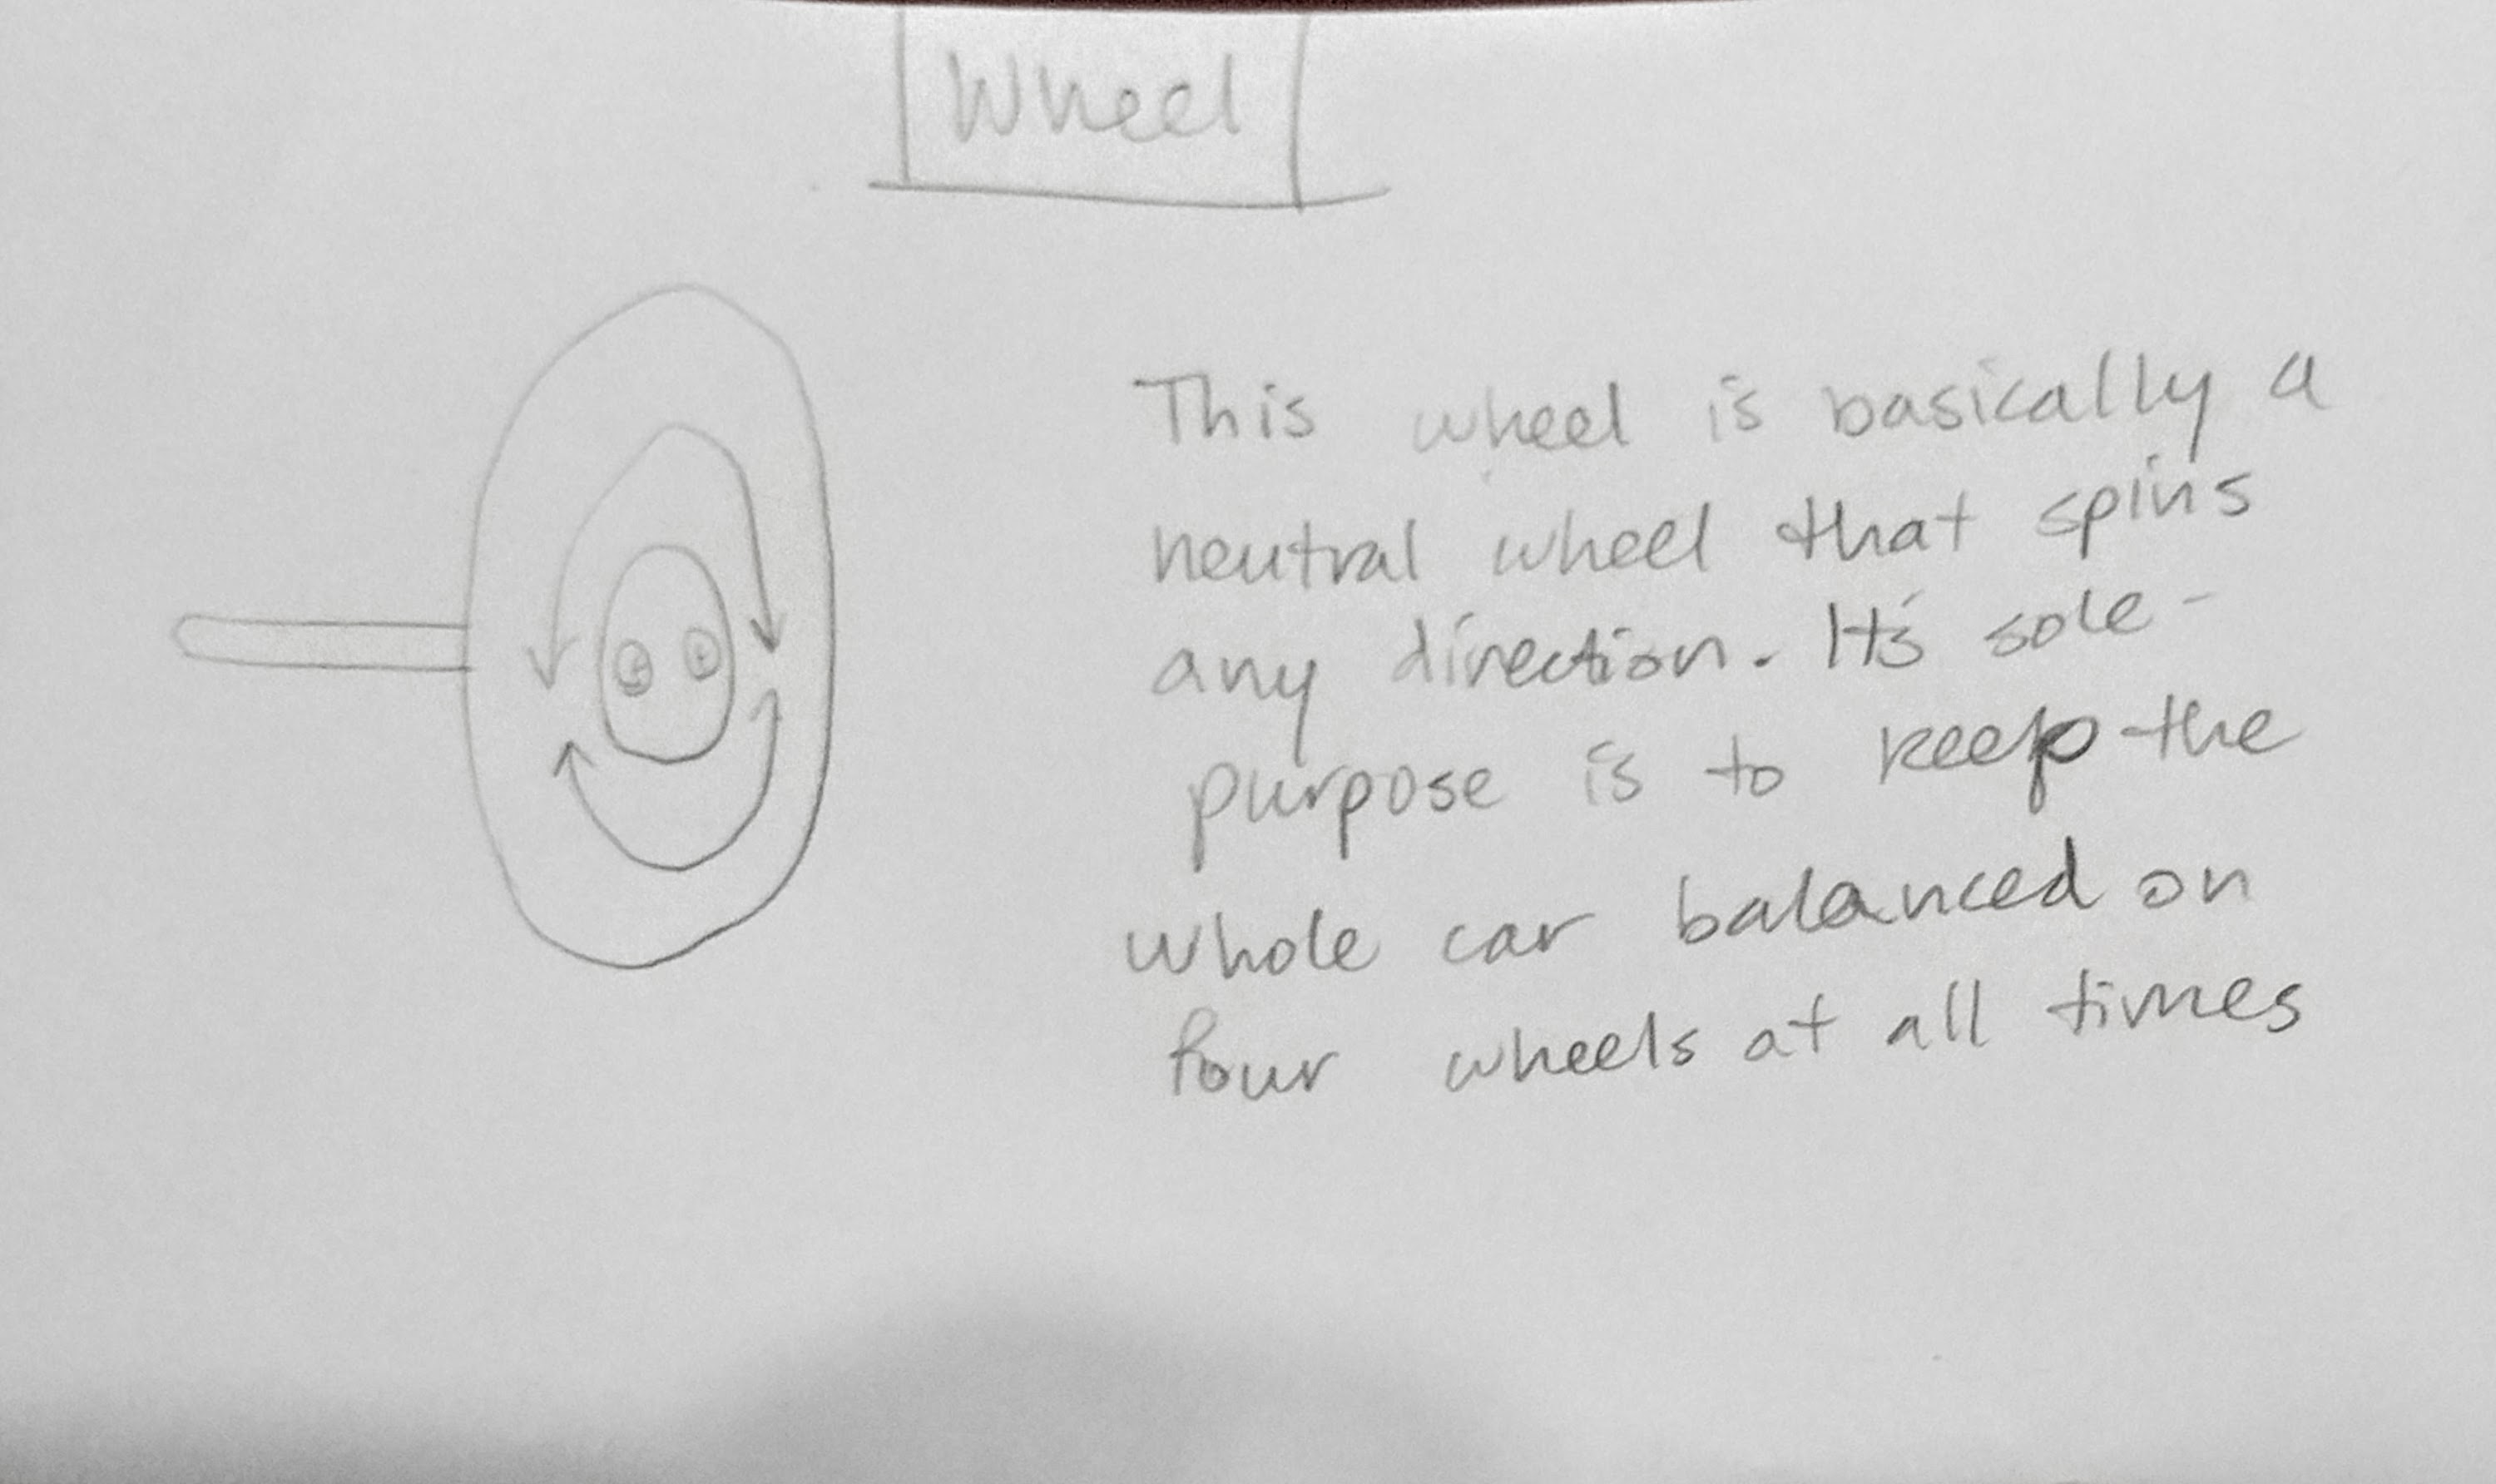 Wheel
This wheel is basically a
neutral wheel that spins
any direction. It's sole-
purpose is to keep the
whole car balanced on
four wheels at all times